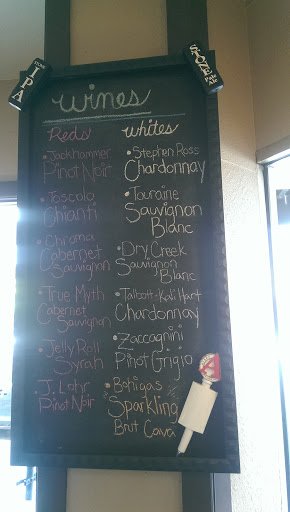 STONE IPA
STONE Pale Ale
Wines
Reds
• Jackhammer
Pinot Noir
• Toscolo
Chianti
• Chroma
Cabernet
Sauvignon
• True Myth
Cabernet
Sauvignon
• Jelly Roll
Syrah
• J. Lohr
Pinot Noir
Whites
• Stephen Ross
Chardonnay
• Touraine
Sauvignon
Blanc
• Dry Creek
Sauvignon
Blanc
• Talbott-Kali Hart
Chardonnay
• Zaccagnini
Pinot Grigio
• Bohigas
Sparkling
Brut Cava